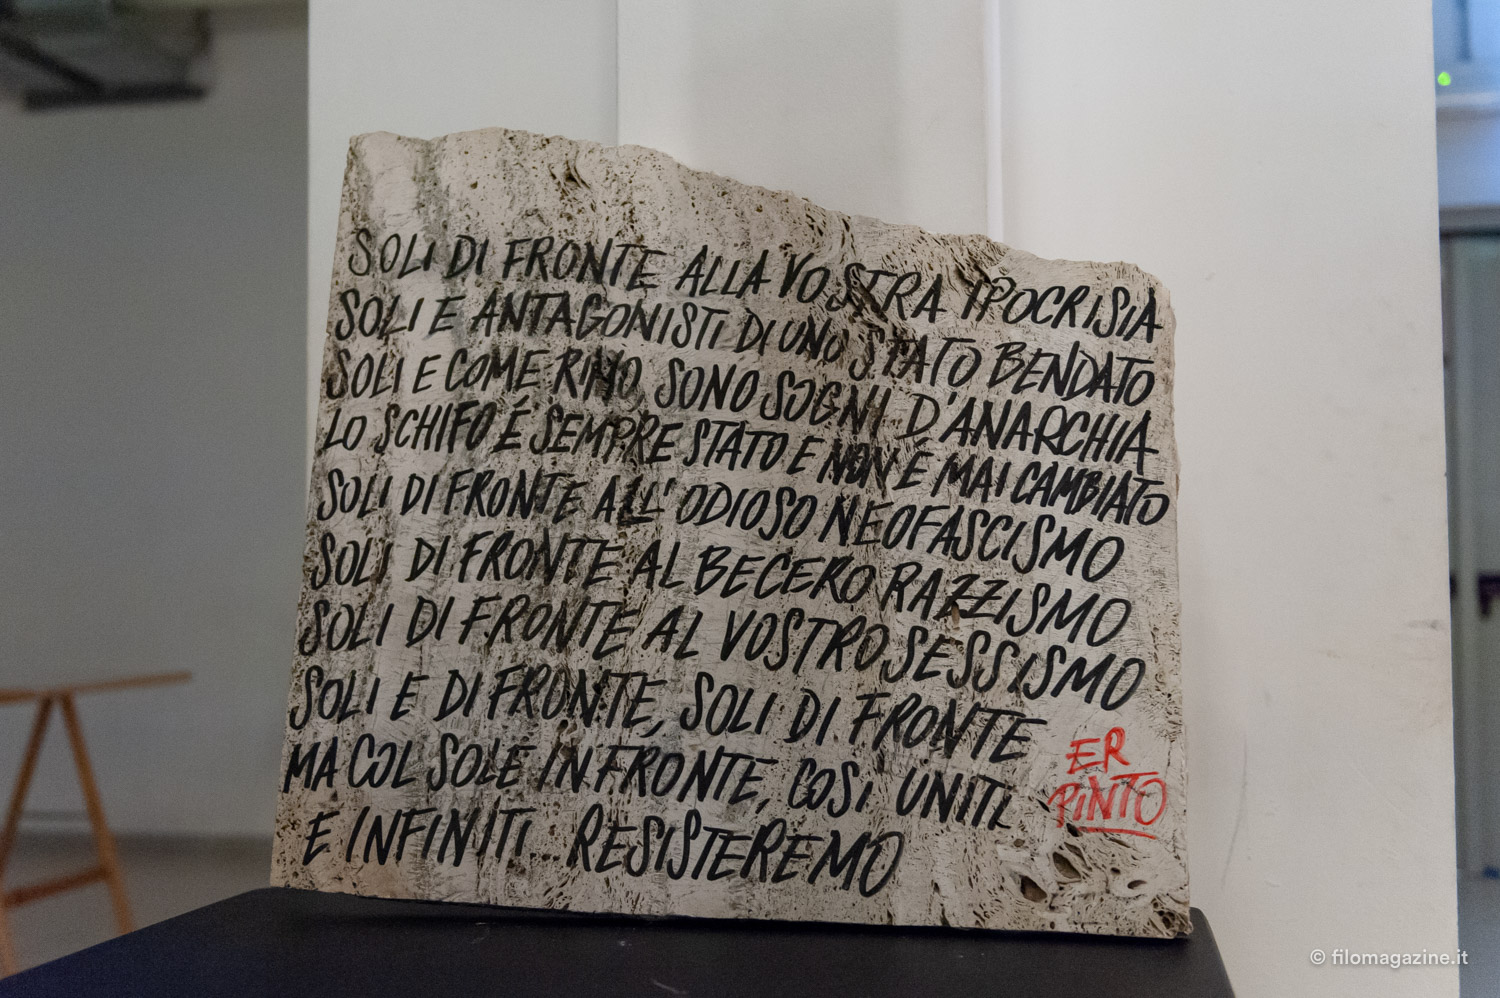 SOLI DI FRONTE ALLA VOSTRA IPOCRISIA
SOLI E ANTAGONISTI DI UNO STATO BENDATO
SOLI E COME RIMO, SONO SOGNI D'ANARCHIA
LO SCHIFO É SEMPRE STATO E NON É MAI CAMBIATO
SOLI DI FRONTE ALL'ODIOSO NEOFASCISMO
SOLI DI FRONTE AL BECERO RAZZISMO
SOLI DI FRONTE AL VOSTRO SESSISMO
SOLI E DI FRONTE, SOLI DI FRONTE
MA COL SOLE IN FRONTE, COSI UNITI
E INFINITI RESISTEREMO
ER
PINTO
© filomagazine.it